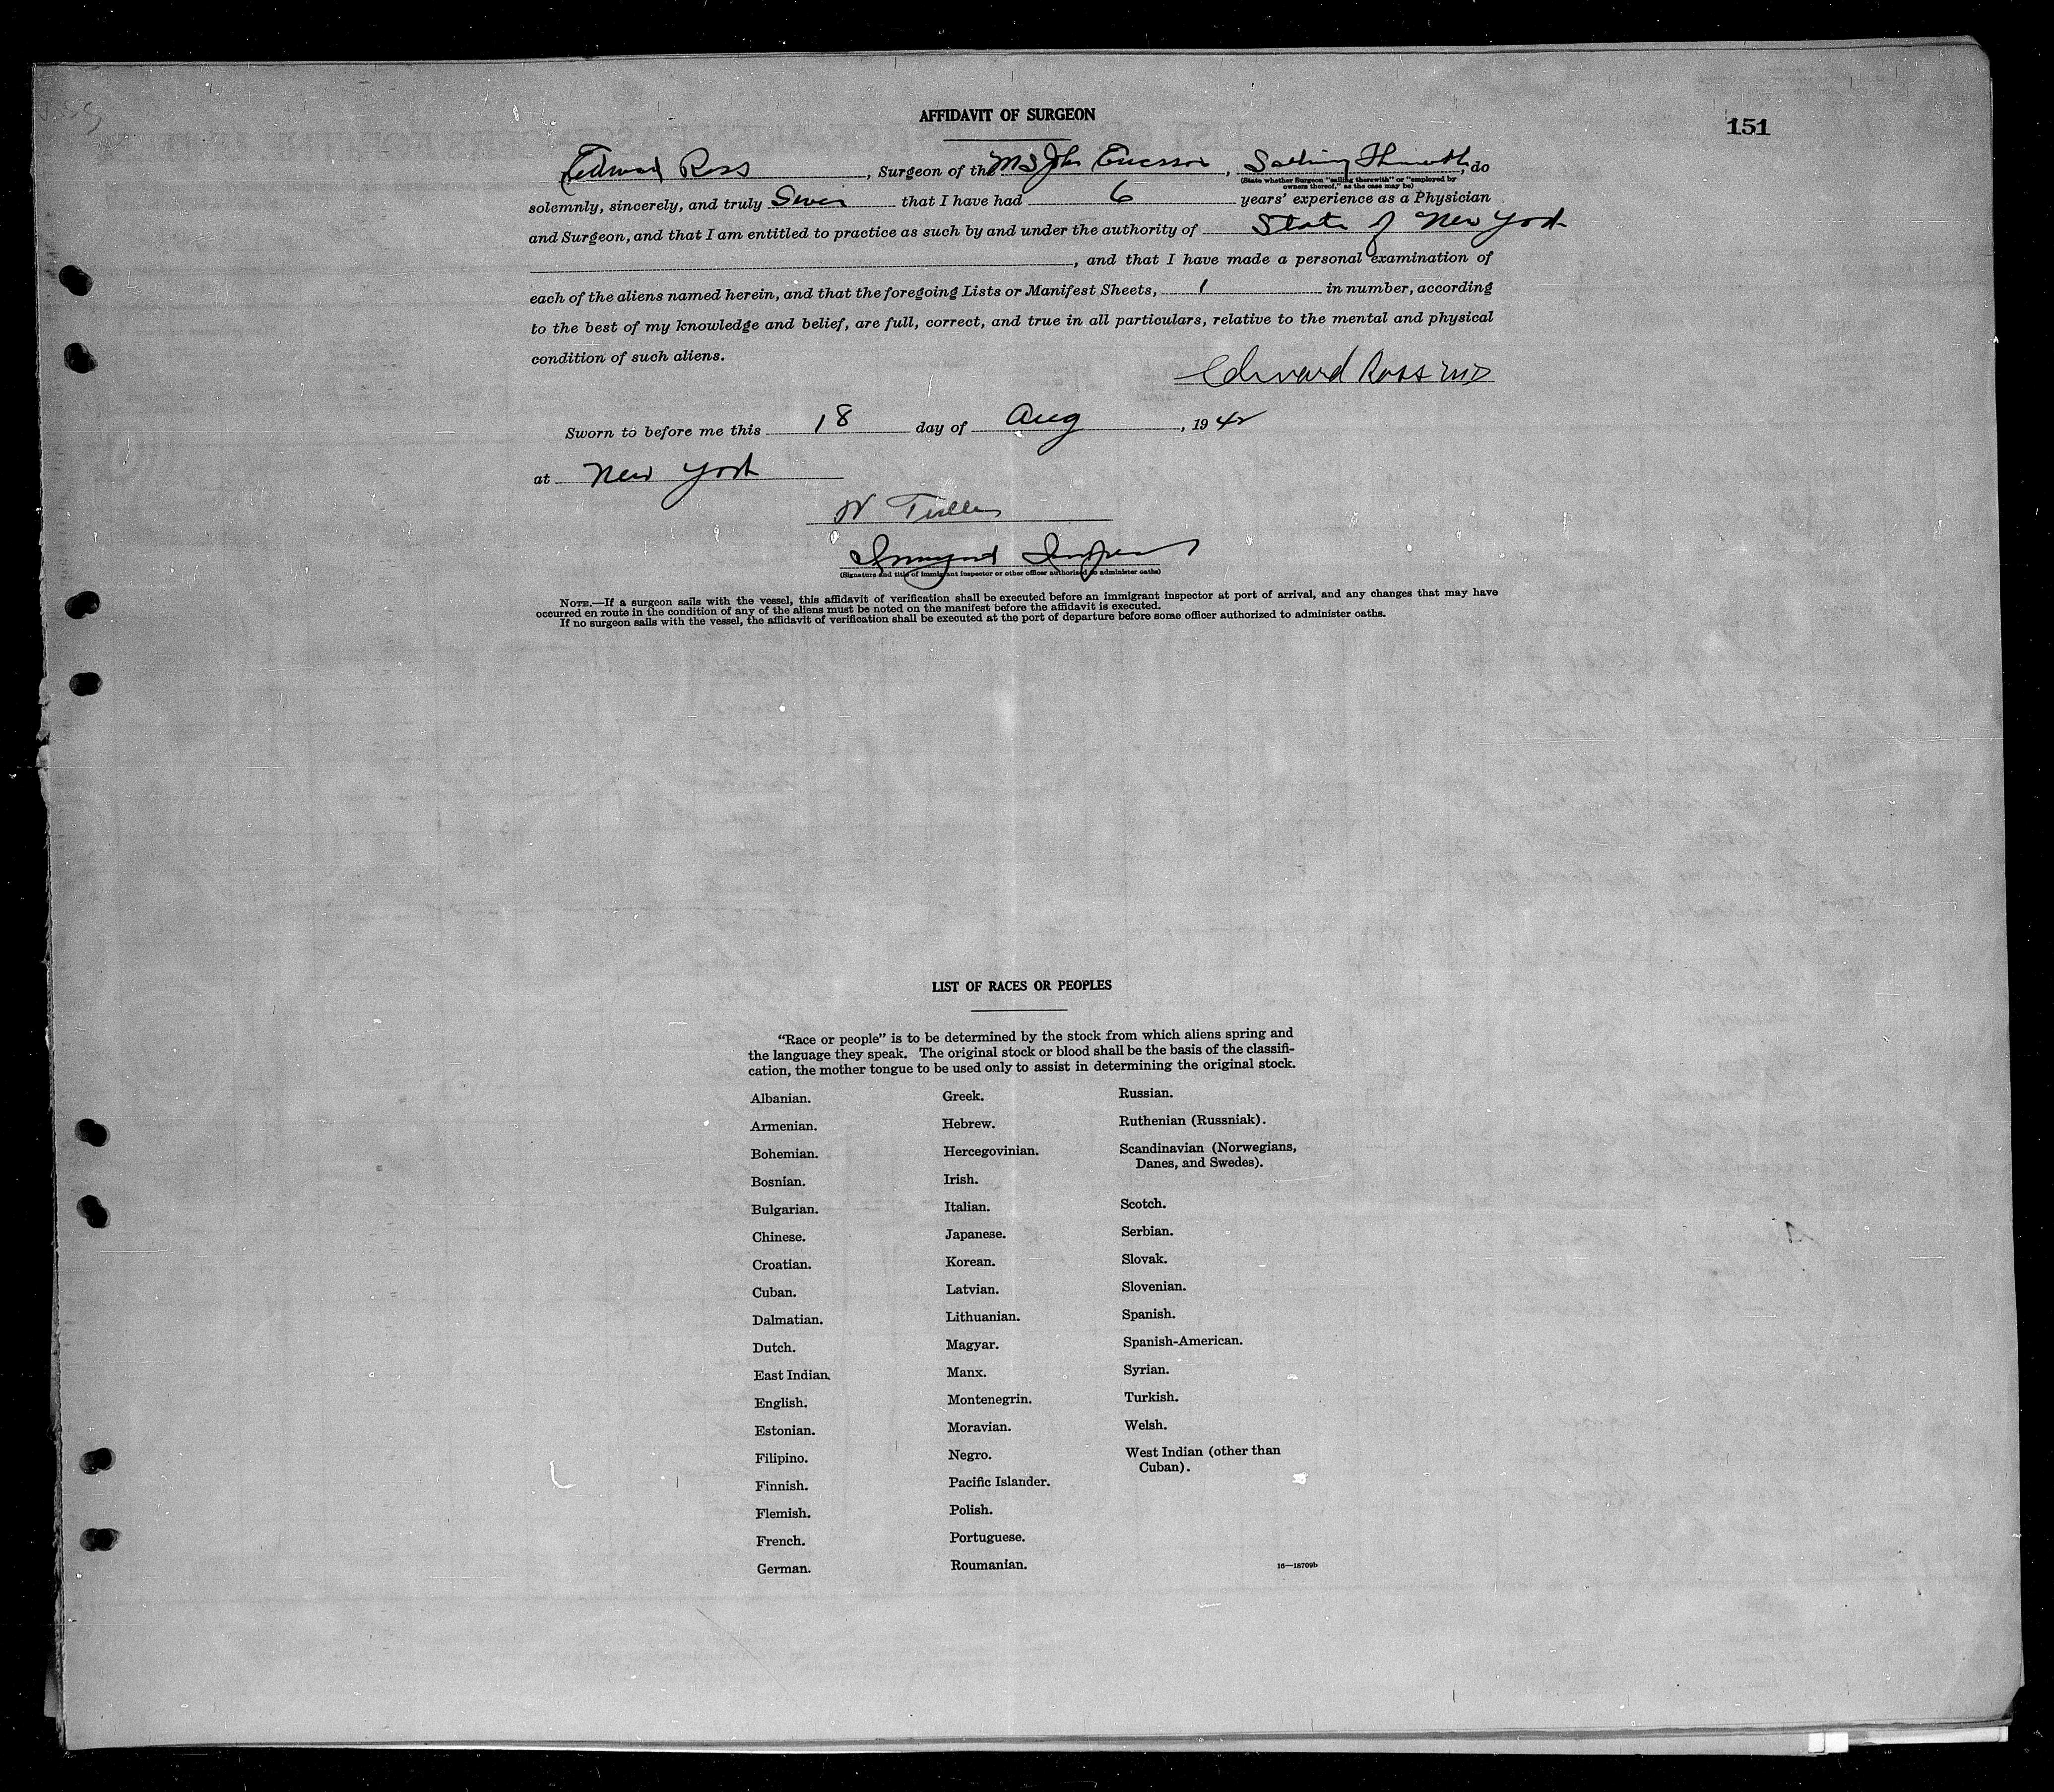 AFFIDAVIT OF SURGEON
151
Edward Ross, Surgeon of the MS John Ericsson, Sailing Therewith, do
(State whether Surgeon "sailing therewith" or "employed by
owners thereof," as the case may be)
solemnly, sincerely, and truly Swear that I have had 6 years' experience as a Physician
and Surgeon, and that I am entitled to practice as such by and under the authority of State of New York
, and that I have made a personal examination of
each of the aliens named herein, and that the foregoing Lists or Manifest Sheets, 1 in number, according
to the best of my knowledge and belief, are full, correct, and true in all particulars, relative to the mental and physical
condition of such aliens.
Edward Ross MD
Sworn to before me this 18 day of Aug, 1942
at New York
(Signature and title of immigrant inspector or other officer authorized to administer oaths)
NOTE.—If a surgeon sails with the vessel, this affidavit of verification shall be executed before an immigrant inspector at port of arrival, and any changes that may have
occurred en route in the condition of any of the aliens must be noted on the manifest before the affidavit is executed.
If no surgeon sails with the vessel, the affidavit of verification shall be executed at the port of departure before some officer authorized to administer oaths.
LIST OF RACES OR PEOPLES
"Race or people" is to be determined by the stock from which aliens spring and
the language they speak. The original stock or blood shall be the basis of the classifi-
cation, the mother tongue to be used only to assist in determining the original stock.
Albanian.
Armenian.
Bohemian.
Bosnian.
Bulgarian.
Chinese.
Croatian.
Cuban.
Dalmatian.
Dutch.
East Indian.
English.
Estonian.
Filipino.
Finnish.
Flemish.
French.
German.
Greek.
Hebrew.
Hercegovinian.
Irish.
Italian.
Japanese.
Korean.
Latvian.
Lithuanian.
Magyar.
Manx.
Montenegrin.
Moravian.
Negro.
Pacific Islander.
Polish.
Portuguese.
Roumanian.
Russian.
Ruthenian (Russniak).
Scandinavian (Norwegians,
Danes, and Swedes).
Scotch.
Serbian.
Slovak.
Slovenian.
Spanish.
Spanish-American.
Syrian.
Turkish.
Welsh.
West Indian (other than
Cuban).
16—18709b